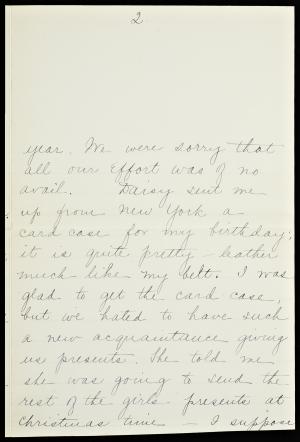 2
year. We were sorry that
all our effort was of no
avail. Daisy sent me
up from New York a
card case for my birthday;
it is quite pretty - leather
much like my belt. I was
glad to get the card case,
but we hated to have such
a new acquaintance giving
us presents. She told me
she was going to send the
rest of the girls presents at
Christmas time - I suppose